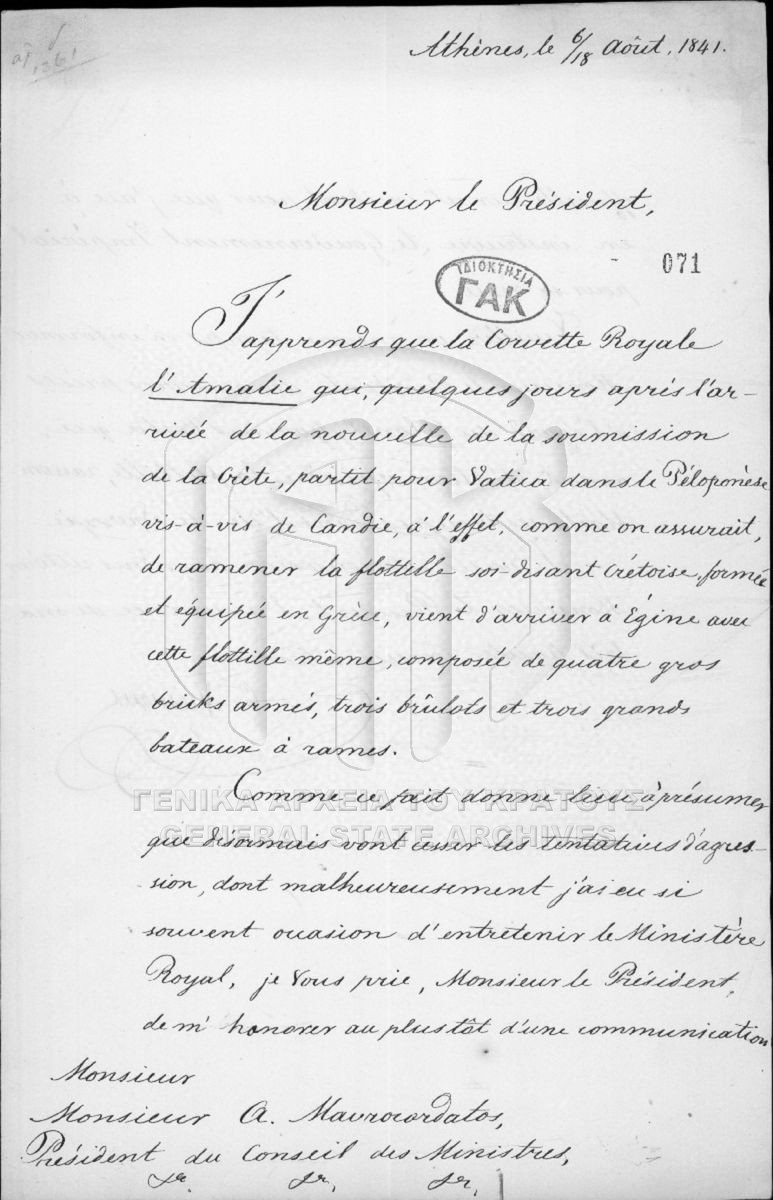 Athènes, le 6/18 Août, 1841.
Monsieur le Président,
071
ΙΔΙΟΚΤΗΣΙΑ
ΓΑΚ
J'apprends que la Corvette Royale
l'Amalie qui, quelques jours après l'ar-
rivée de la nouvelle de la soumission
de la Crète, partit pour Vatica dans le Péloponèse
vis-à-vis de Candie, à l'effet, comme on assurait,
de ramener la flottille soi-disant Crétoise, formée
et équipée en Grèce, vient d'arriver à Égine avec
cette flottille même, composée de quatre gros
bricks armés, trois brûlots et trois grands
bateaux à rames.
Comme ce fait donne lieu à présumer
ΓΕΝΙΚΑ ΑΡΧΕΙΑ ΤΟΥ ΚΡΑΤΟΥΣ
GENERAL STATE ARCHIVES
que désormais vont cesser les tentatives d'agres-
sion, dont malheureusement j'ai eu si
souvent occasion d'entretenir le Ministère
Royal, je Vous prie, Monsieur le Président,
de m'honorer au plustôt d'une communication
Monsieur
Monsieur A. Mavrocordatos,
Président du Conseil des Ministres,